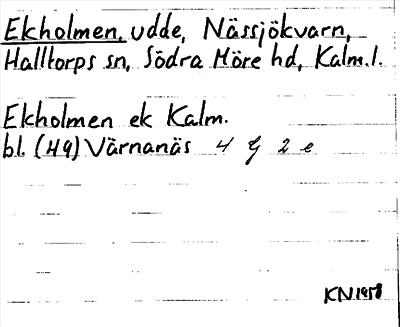 Ekholmen, udde, Nässjökvarn,
Halltorps sn, Södra Möre hd, Kalm.l.
Ekholmen ek Kalm.
bl. (49) Värnanäs 4 G 2 e
KN 1958